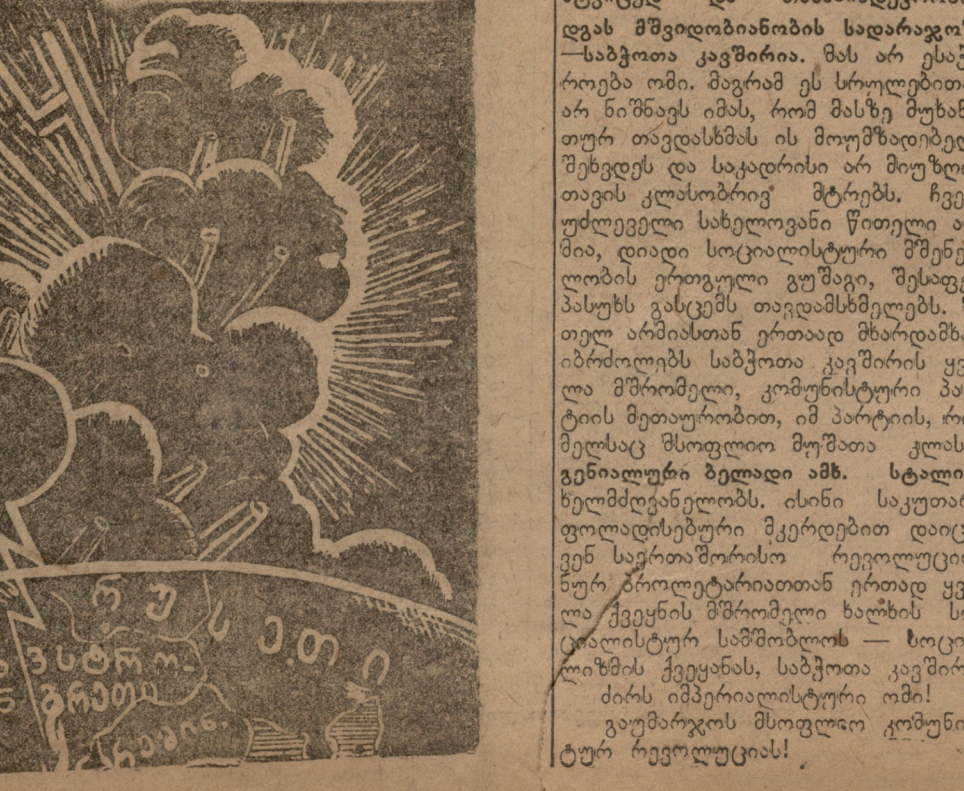 რუსეთი
ავსტრო.
უნგრეთი
რუმინ.
დგას მშვიდობიანობის სადარაჯო
—საბჭოთა კავშირია. მას არ ესაჭ
როება ომი. მაგრამ ეს სრულებით
არ ნიშნავს იმას, რომ მასზე მუხან
თურ თავდასხმას ის მოუმზადებელ
შეხვდეს და საკადრისი არ მიუზღ
თავის კლასობრივ მტრებს. ჩვე
უძლეველი სახელოვანი წითელი ა
მია, დიადი სოციალისტური მშენე
ლობის ერთგული გუშაგი, შესაფე
პასუხს გასცემს თავდამსხმელებს.
თელ არმიასთან ერთაად მხარდამხა
იბრძოლებს საბჭოთა კავშირის ყვ
ლა მშრომელი, კომუნისტური პა
ტიის მეთაურობით, იმ პარტიის, რ
მელსაც მსოფლიო მუშათა კლას
გენიალური ბელადი ამხ. სტალი
ხელმძღვანელობს. ისინი საკუთარ
ფოლადისებური მკერდებით დაიც
ვენ საერთაშორისო რევოლუცი
ნურ პროლეტარიათთან ერთად ყვ
ლა ქვეყნის მშრომელი ხალხის ს
ციალისტურ სამშობლოს — სოცი
ლიზმის ქვეყანას, საბჭოთა კავშირ
ძირს იმპერიალისტური ომი!
გაუმარჯოს მსოფლიო კომუნი
ტურ რევოლუციას!